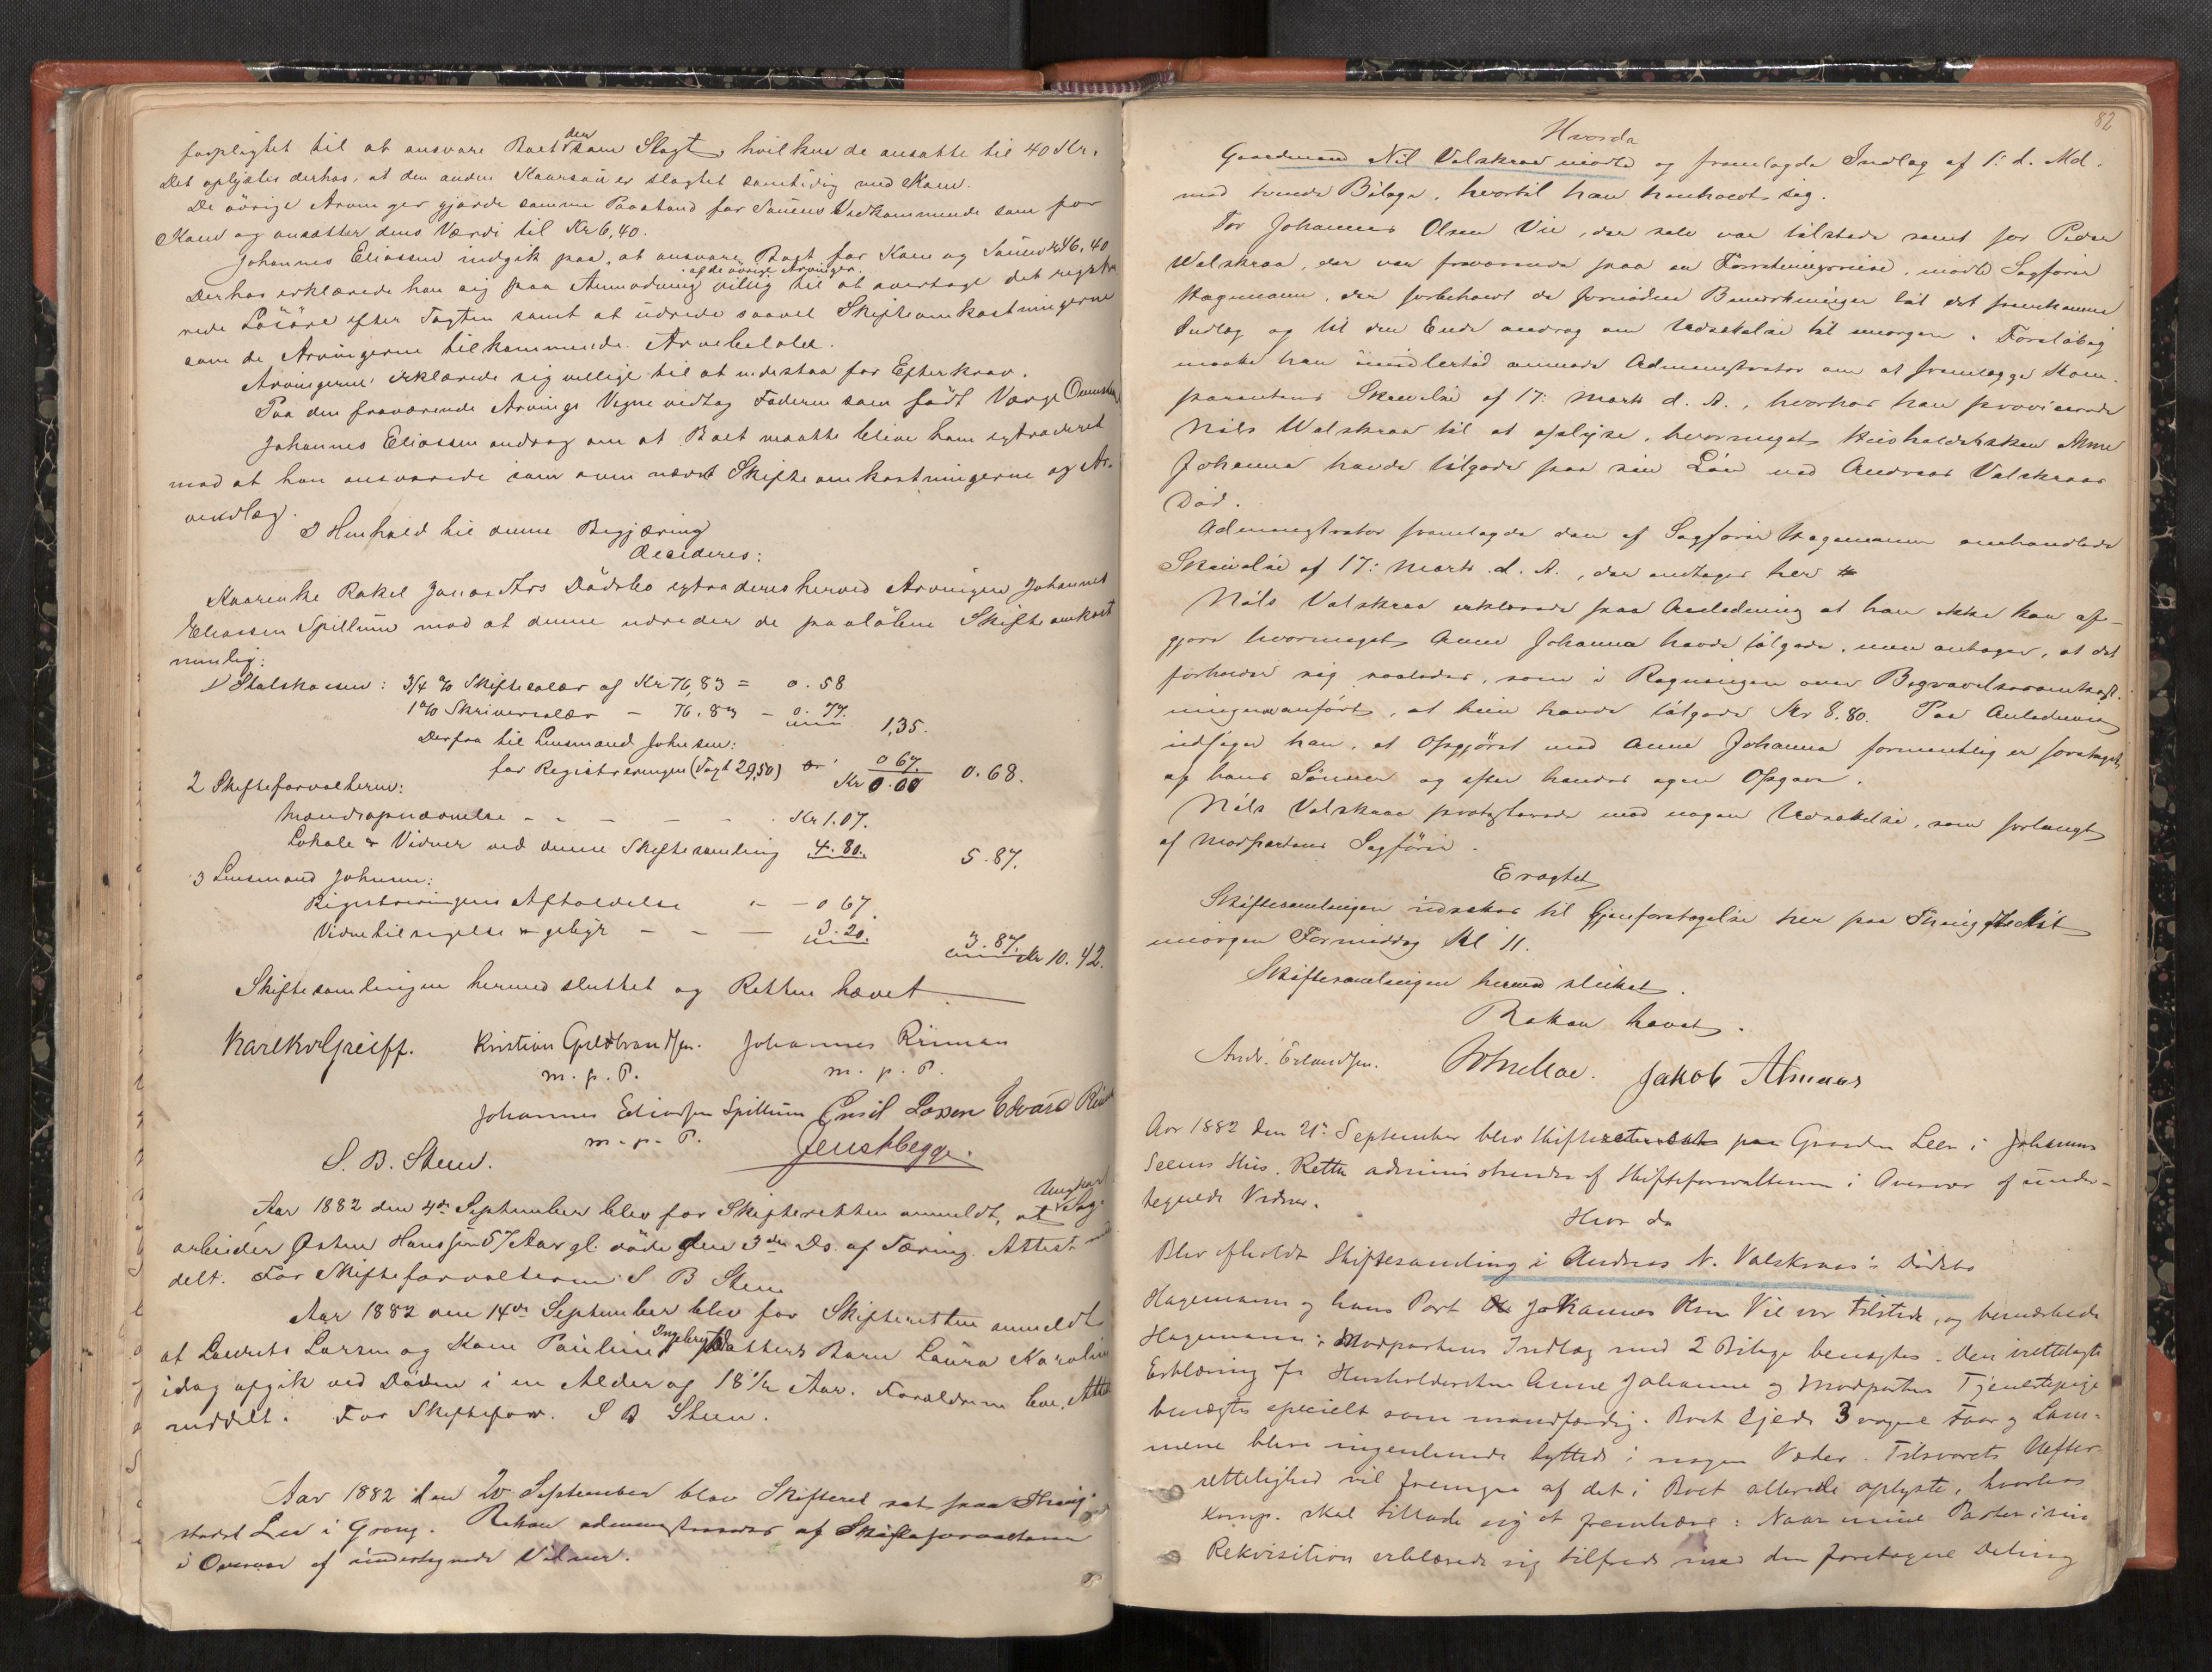 forpligtet til at ansvare Boet den ene Slagt, hvilken de ansatte til 40 Kr.
Det oplystes derhos, at den anden Kaarsau er slagtet samtidig med Koen.
De övrige Arvinger gjorde samme Paastand for Sauens Vedkommende som for
Koen og ansatter dens Værdi til Kr 6,40.
Johannes Eliassen indgik paa, at ansvare Boet for Koen og Sauen Kr 46,40
Derhos erklærede han sig paa Anmodning af de övrige Arvinger villig til at overtage det registre
rede Lösöre efter Taxten samt at udrede saavel Skifteomkostningerne
som de Arvingerne tilkommende Arvebeløb.
Arvingerne erklærede sig villige til at indestaa for Efterkrav.
Paa den fraværende Arvings Vegne vedtog Faderen som født Værge
Johannes Eliassen androg om at Boet maatte blive ham extraderet
mod at han ansvarede som oven nævnt Skifteomkostningerne og Ar-
veudlæg.
I Henhold til denne Begjæring
Decideres:
Kaarenke Rakel Jonas Drs Dödsbo extraderes herved Arvingen Johannes
Eliassen Spillum mod at denne udreder de paalöbne Skifteomkost
nemlig:
1/ Statskassen: 3/4 % Skiftesalær af Kr 76,83 = 0.58
1 % Skriversalær - 76.83 - 0.77. 1,35.
Derfra til Lensmand Johnsen:
for Registreringen (Taxt 29,50) 0 67. 0.68.
2 Skifteforvalteren: Kr
Mændsopnævnelse - - - - - Kr 1.07.
Lokale & Vidner ved denne Skiftesamling 4.80. 5.87.
3 Lensmand Johnsen:
Registreringens Afholdelse - - 0 67.
Vidnetilsigelse & gebyr - - - 3.20. 3.87.
Kr 10.42.
Skiftesamlingen hermed sluttet og Retten hævet.
Karl Kr Greiff. Kristian Guldbrandsen. Johannes Riiman
m. p. P. m. p. P.
Johannes Eliassen Spillum Emil Lassen Edvard
m. p. P.
S. B. Steen. Jenst Begge.
Aar 1882 den 4de September blev for Skifteretten anmeldt, at Ungkar Dag-
arbeider Østen Hanssen 57 Aar gl. døde den 3die Ds. af Tæring. Attest med
delt. For Skifteforvalteren S B Steen
Aar 1882 den 14de September blev for Skifteretten anmeldt
at Laurits Larsen og Kone Pauline Ingebrigtsdatters Barn Laura Karoline
idag afgik ved Døden i en Alder af 18 1/2 Aar. Forældrene leve. Attest
meddelt. For Skiftefor. S B Steen.
Aar 1882 den 20 September blev Skifteret sat paa Thing-
stedet Leer i Grong. Retten administreredes af Skifteforvalteren
i Overvær af undertegnede Vidner.
82
Hvorda
Gaardmand Nil Valskraa mødte og fremlagde Indlæg af 1: d. Md.
med tvende Bilage, hvortil han henholdt sig.
For Johannes Olsen Vie, der selv var tilstede samt for Peder
Walskraa, der var fraværende paa en Forretningsreise, mødte Sagfører
Hagemann, der forbeholdt de fornødne Bemærkninger til det fremkomne
Indlæg og til den Ende androg om Udsættelse til imorgen. Foreløbig
maatte han imidlertid anmode Administrator om at fremlægge Kom-
parentens Skrivelse af 17: Marts d. A., hvorhos han provocerede
Nils Walskraa til at oplyse, hvormeget Husholdersken Anne
Johanna havde tilgode paa sin Løn ved Andreas Valskraas
Död.
Administrator fremlagde den af Sagfører Hagemann omhandlede
Skrivelse af 17: Marts d. A., der indtages her
Nils Valskraa erklærede paa Anledning at han ikke kan af-
gjøre hvormeget Anne Johanna havde tilgode, men antager, at det
forholder sig saaledes, som i Regningen over Begravelsesomkost-
ningerne anført, at hun havde tilgode Kr 8.80. Paa Anledning
udsiger han, at Opgjøret med Anne Johanna formentlig er foretaget
af hans Sønner og efter hendes egen Opgave.
Nils Valskraa protesterede mod nogen Udsættelse, som forlangt
af Modpartens Sagfører.
Eragtet
Skiftesamlingen udsættes til Gjenforetagelse her paa Thingstedet
imorgen Formiddag Kl 11.
Skiftesamlingen hermed sluttet.
Retten hævet.
Andr. Erlandsen. Jakob Almaas
Aar 1882 den 21de September blev Skifteret sat paa Gaarden Leer i Johannes
Seems Hus. Retten administreredes af Skifteforvalteren i Overvær af under-
tegnede Vidner.
Hvor da
Blev afholdt Skiftesamling i Andreas N. Valskraas Dödsbo
Hagemann og hans Part Johannes Olsen Vie var tilstede, og bemærkede
Hagemann: Modpartens Indlæg med 2 Bilage benægtes. Den irettelagte
Erklæring fra Husholdersken Anne Johanne og Modpartens Tjenestepige
benægtes specielt som uandfærdig. Boet ejede 3 voxne Faar og Lam-
mene blev ingenlunde byttede i nogen Væder. Tilsvarets Uefter-
rettelighed vil fremgaa af det i Boet allerede oplyste, hvorhos
Komp. skal tillade sig at fremhæve: Naar mine Parter i sin
Rekvisition erklærede sig tilfreds med den foretagne Deling